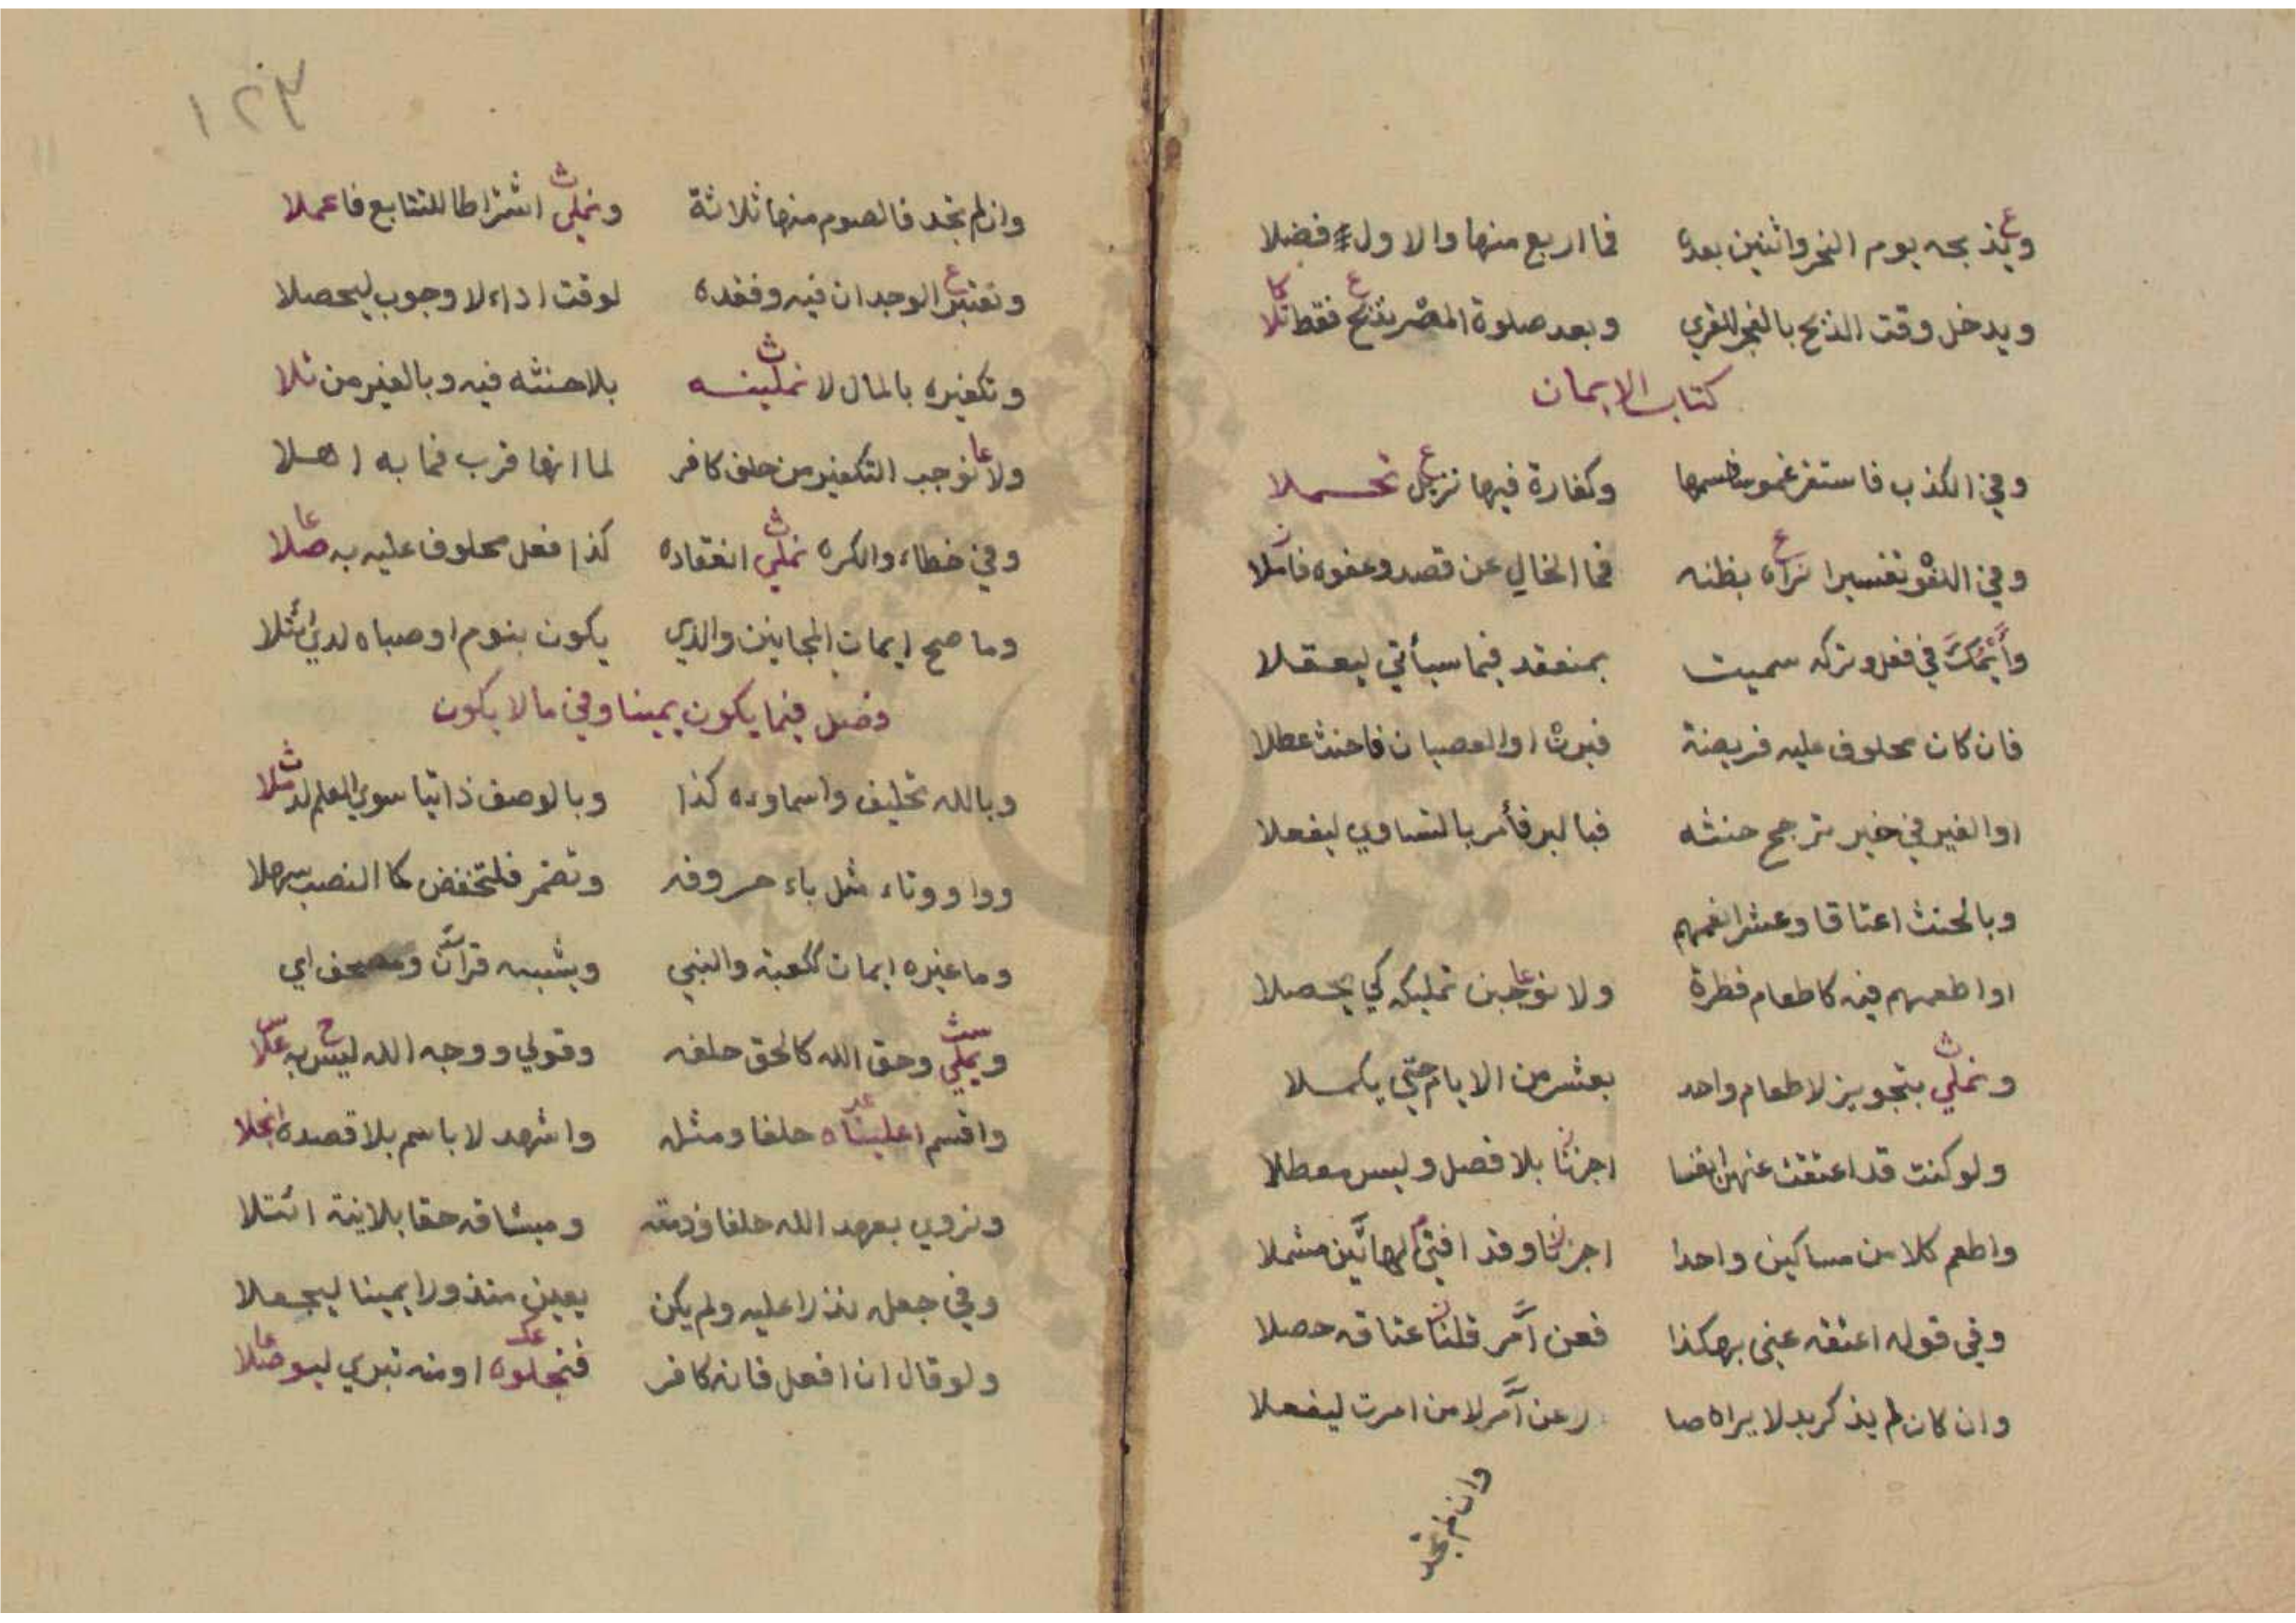 ويذبحه يوم النحر واثنين بعده فما اربع منها والاول فضلا
ويدخل وقت الذبح بالفجر للقري وبعد صلوة المصر نذبح فقط تلا
كتاب الايمان
وفي الكذب فاستغفر غموسا وكفارة فيها تحملا
وفي اللغو تفسيرا نراه بظنه فما الخالي عن قصد وعفوه فاملا
في فعل وتركه سميت بمنعقد فيما سيأتي ليعقلا
فان كان محلوف عليه فريضة فبرت او العصيان فاحنث عطلا
او الغير في خير ترجح حنثه فبالبر فأمر بالتساوي ليفعلا
وبالحنث اعتاقا وعشرا
او اطعمهم فيه كاطعام فطرة ولا نوجبن تمليكه كي يحصلا
ونملي بتجويز لاطعام واحد بعشر من الايام حتي يكملا
ولو كنت قد اعتقت اجزنا بلا فصل وليس معطلا
واطعم كلا من مساكين واحدا اجزنا وقد افتي مشملا
وفي قوله اعتقه عني بهكذا فعن آمر قلنا عتاقه حصلا
وان كان لم يذكر بدلا يراه صا رعن آمر لا من امرت ليفعلا
وان لم تجد
١٢٣
وان لم تجد فالصوم منها ثلاثة ونملي اشتراطا للتتابع فاعملا
ونعتبر الوجدان فيه وفقده لوقت اداء لا وجوب ليحصلا
وتكفيره بالمال لا نملينه بلا حنثه فيه وبالغير من تلا
ولا نوجب التكفير من حلف كافر لما انها قرب فما به اهلا
وفي خطاء والكره نملي انعقاده كذا فعل محلوف عليه به صلا
وما صح ايمان المجانين والذي يكون بنوم او صباه لدي
فصل فيما يكون يمينا وفي ما لا يكون
وبالله تحليف واسماءه كذا وبالوصف ذاتيا سوي العلم
وواو وتاء مثل باء حروفه وتضمر فلتخفض كما النصب سهلا
وما غيره ايمان ككعبة والنبي ويشبه قرآن ومصحف اي
ويملي وحق الله كالحق حلفه وقولي ووجه الله ليس به علا
واقسم اعليناه حلفا ومثله واشهد لا باسم بلا قصده انجلا
ونروي بعهد الله حلفا وذمة وميثاقه حقا بلا نية ائتلا
وفي جعله نذرا عليه ولم يكن يعين منذورا يمينا ليجعلا
ولو قال ان افعل فانه كافر او منه تبري ليوصلا